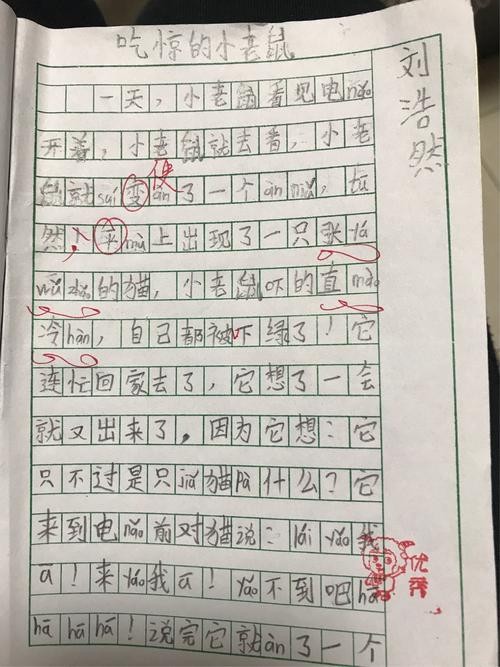 吃惊的小老鼠
刘浩然
一天，小老鼠看见电nǎo
开着，小老鼠就去看，小老
鼠就suí变àn了一个àn niǔ，tū
便
然，伞mù上出现了一只张yá
wǔ zhǎo的猫，小老鼠吓的直mào
冷hàn，自己都被吓绿了！它
连忙回家去了，它想了一会
就又出来了，因为它想：它
只不过是只jiǎ猫pà什么？它
来到电nǎo前对猫说：lái yǎo我
ā！来yǎo我ā！yǎo不到吧hā
hā hā hā！说完它就àn了一个
优秀